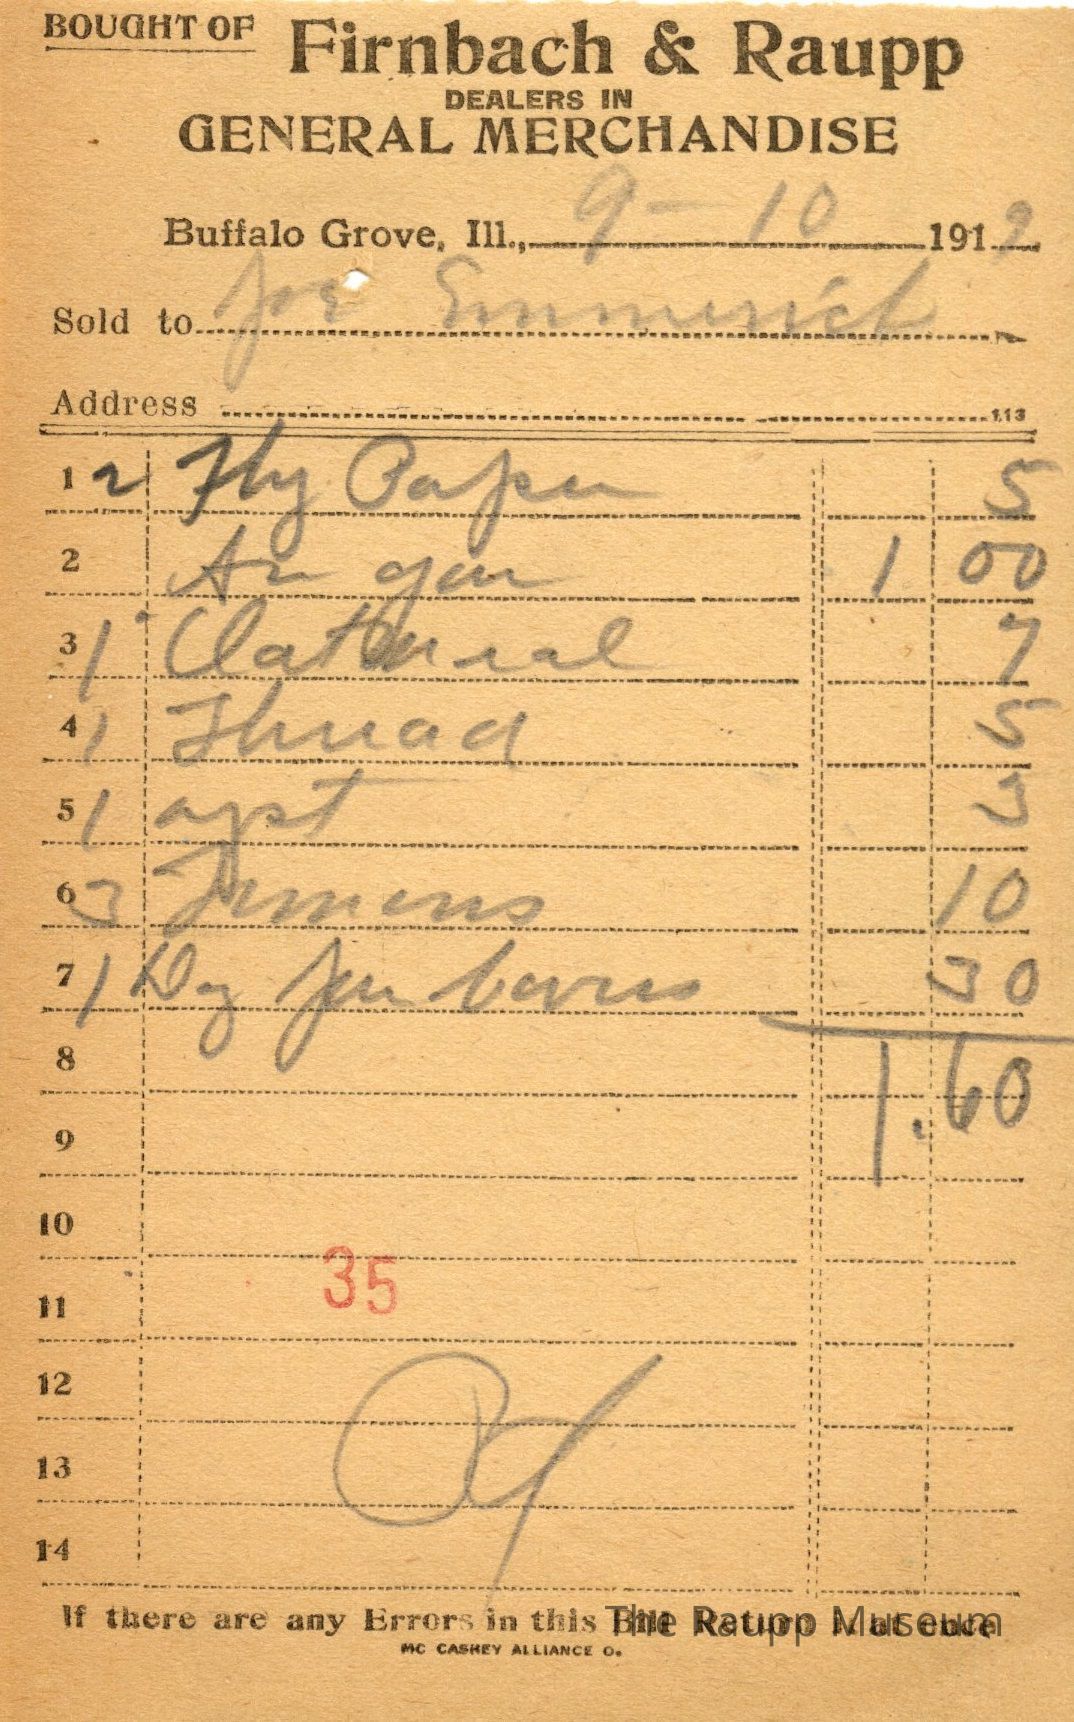 BOUGHT OF Firnbach & Raupp
DEALERS IN
GENERAL MERCHANDISE
Buffalo Grove, Ill., 9-10 1919
Sold to Joe Emmerich
Address 113
1 2 Fly Paper 5
2 1 00
3 1 Oatmeal 7
4 1 Thread 5
5 1 3
6 3 10
7 1 Doz Jar Covers 30
8 1.60
9
10
11 35
12
13
14
If there are any Errors in this Bill Return at once
The Raupp Museum
MC CASKEY ALLIANCE O.